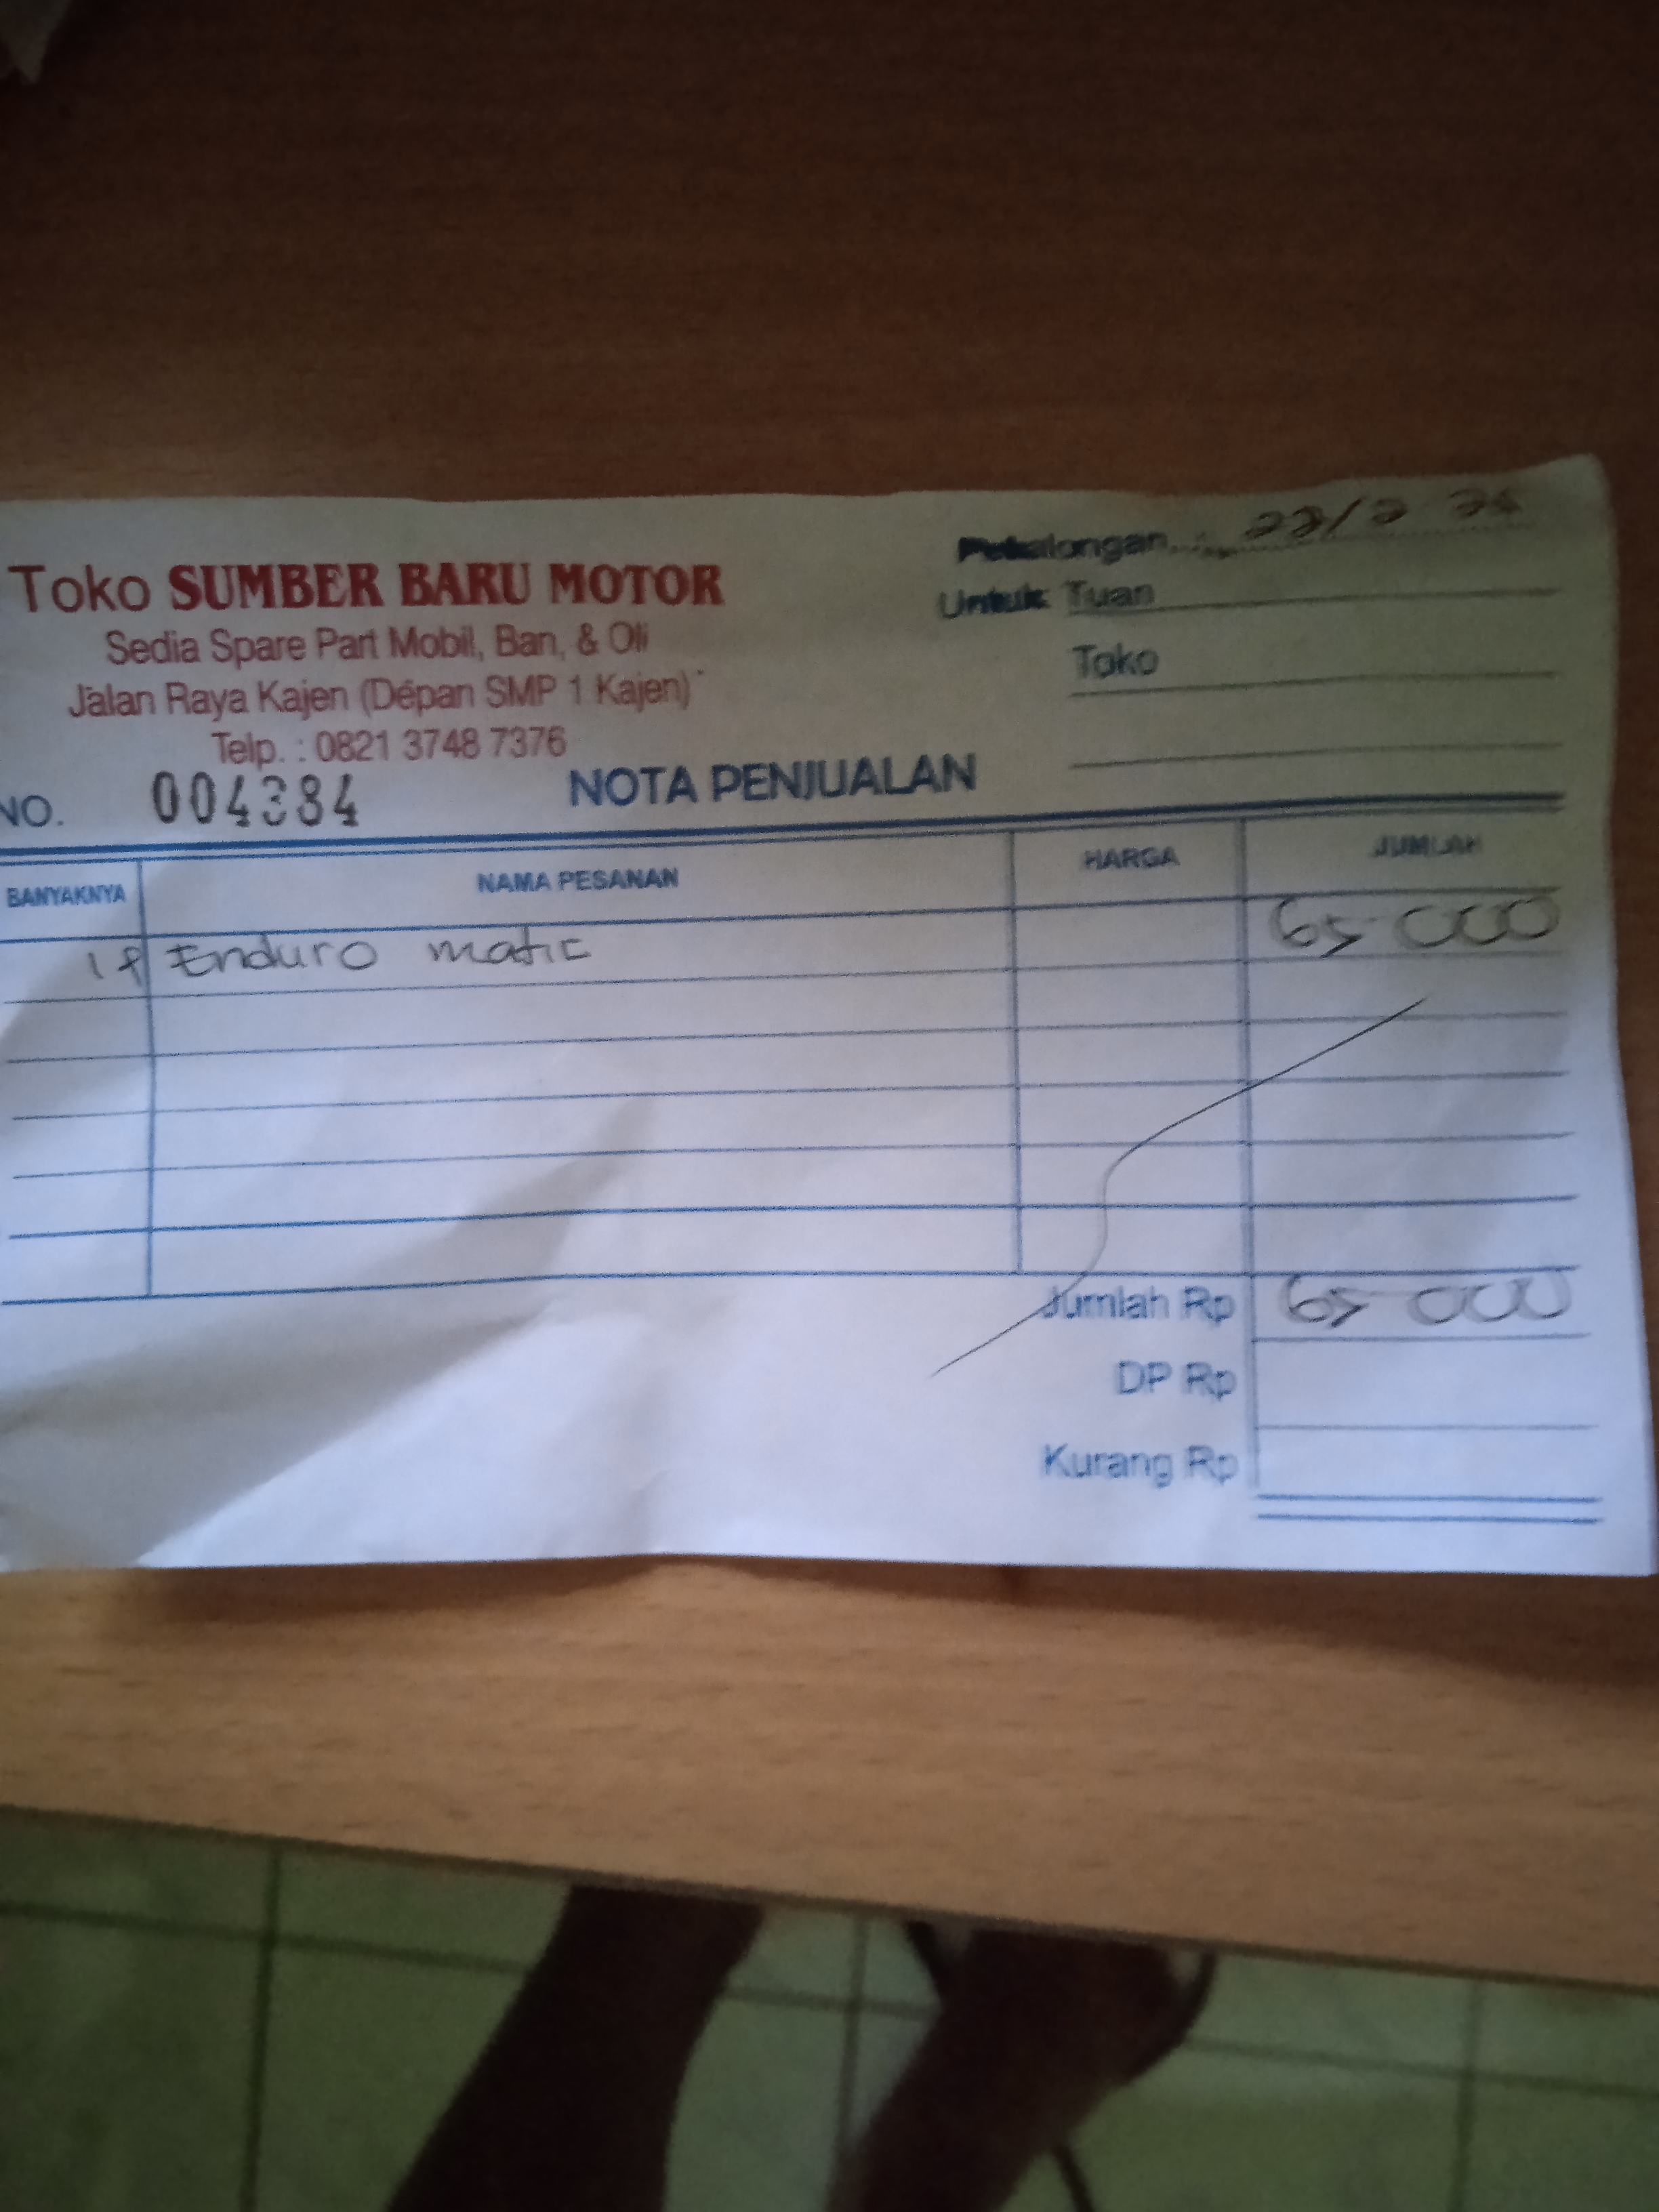 Toko SUMBER BARU MOTOR
Sedia Spare Part Mobil, Ban, & Oli
Jalan Raya Kajen (Depan SMP 1 Kajen)
Telp. : 0821 3748 7376
Pekalongan
Untuk Tuan
Toko
NO. 004384 NOTA PENJUALAN
BANYAKNYA NAMA PESANAN HARGA JUMLAH
1 Enduro matic 65 000
Jumlah Rp 65 000
DP Rp
Kurang Rp